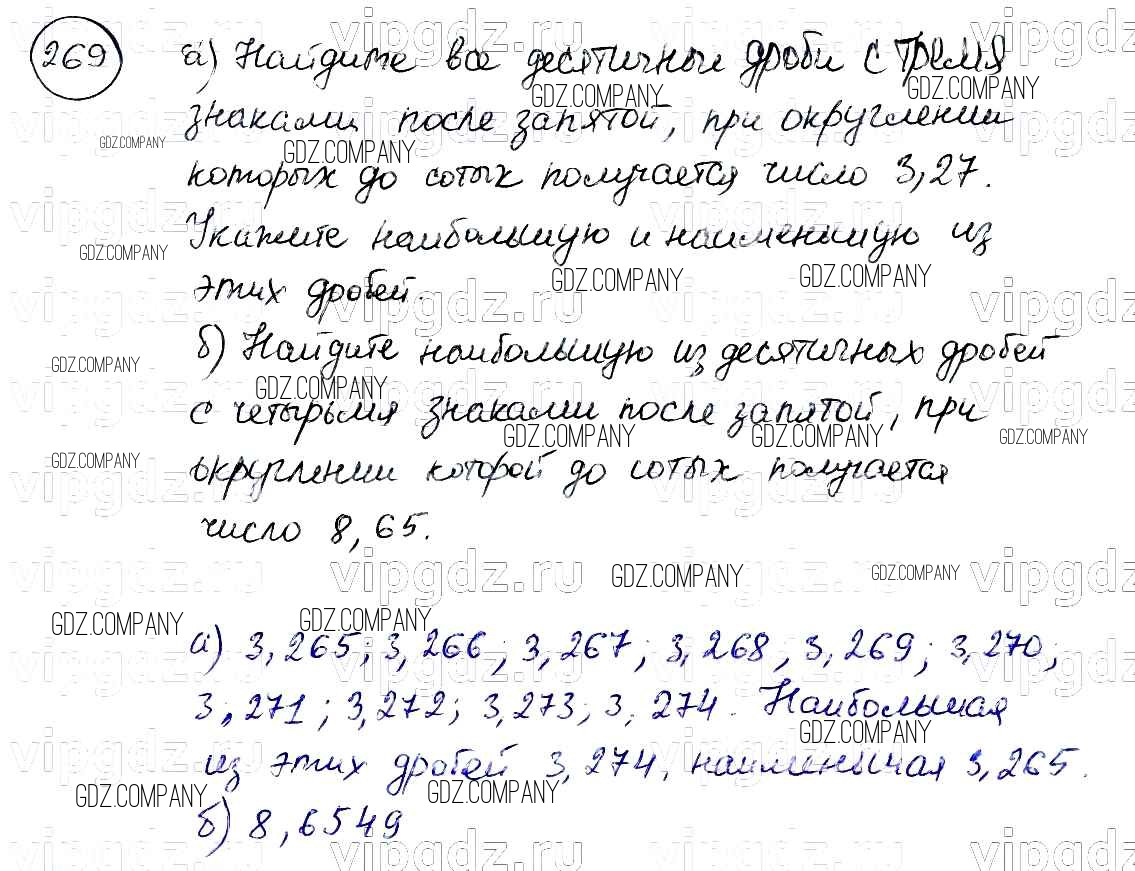 269 а) Найдите все десятичные дроби с тремя
знаками после запятой, при округлении
которых до сотых получается число 3,27.
Укажите наибольшую и наименьшую из
этих дробей.
б) Найдите наибольшую из десятичных дробей
с четырьмя знаками после запятой, при
округлении которой до сотых получается
число 8,65.
а) 3,265; 3,266; 3,267; 3,268, 3,269; 3,270;
3,271; 3,272; 3,273; 3,274. Наибольшая
из этих дробей 3,274, наименьшая 3,265.
б) 8,6549